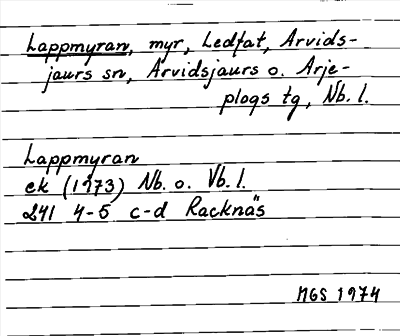 Lappmyran, myr, Ledfat, Arvids-
jaurs sn, Arvidsjaurs o. Arje-
plogs tg, Nb. l.
Lappmyran
ek (1973) Nb. o. Vb. l.
24I 4-5 c-d Racknäs
MGS 1974